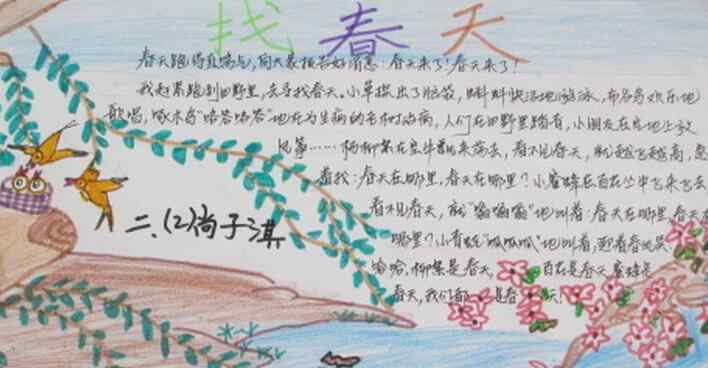 找春天
春天跑得真端, 向大家报告好消息:春天来了!春天来了!
我赶紧跑到田野里,去寻找春天。小草探出了脑袋,蝌蚪快活地游泳,布谷鸟欢乐地
歌唱,啄木鸟“嗒嗒嗒嗒”地在为生病的老树治病,人们在田野里踏青,小朋友在空地上放
风筝……杨柳絮在空中荡来荡去,看不见春天,就越飞越高,
着找:春天在哪里,春天在哪里?小蜜蜂在百花丛中飞来飞去
看不见春天,就“嗡嗡嗡”地叫着:春天在哪里,春天在
哪里?小青蛙“呱呱呱”地叫着,迎着春风笑
哈哈,柳絮是春天,百花是春天,蜜蜂是
春天,我们都是春天!
二、(2)尚子淇